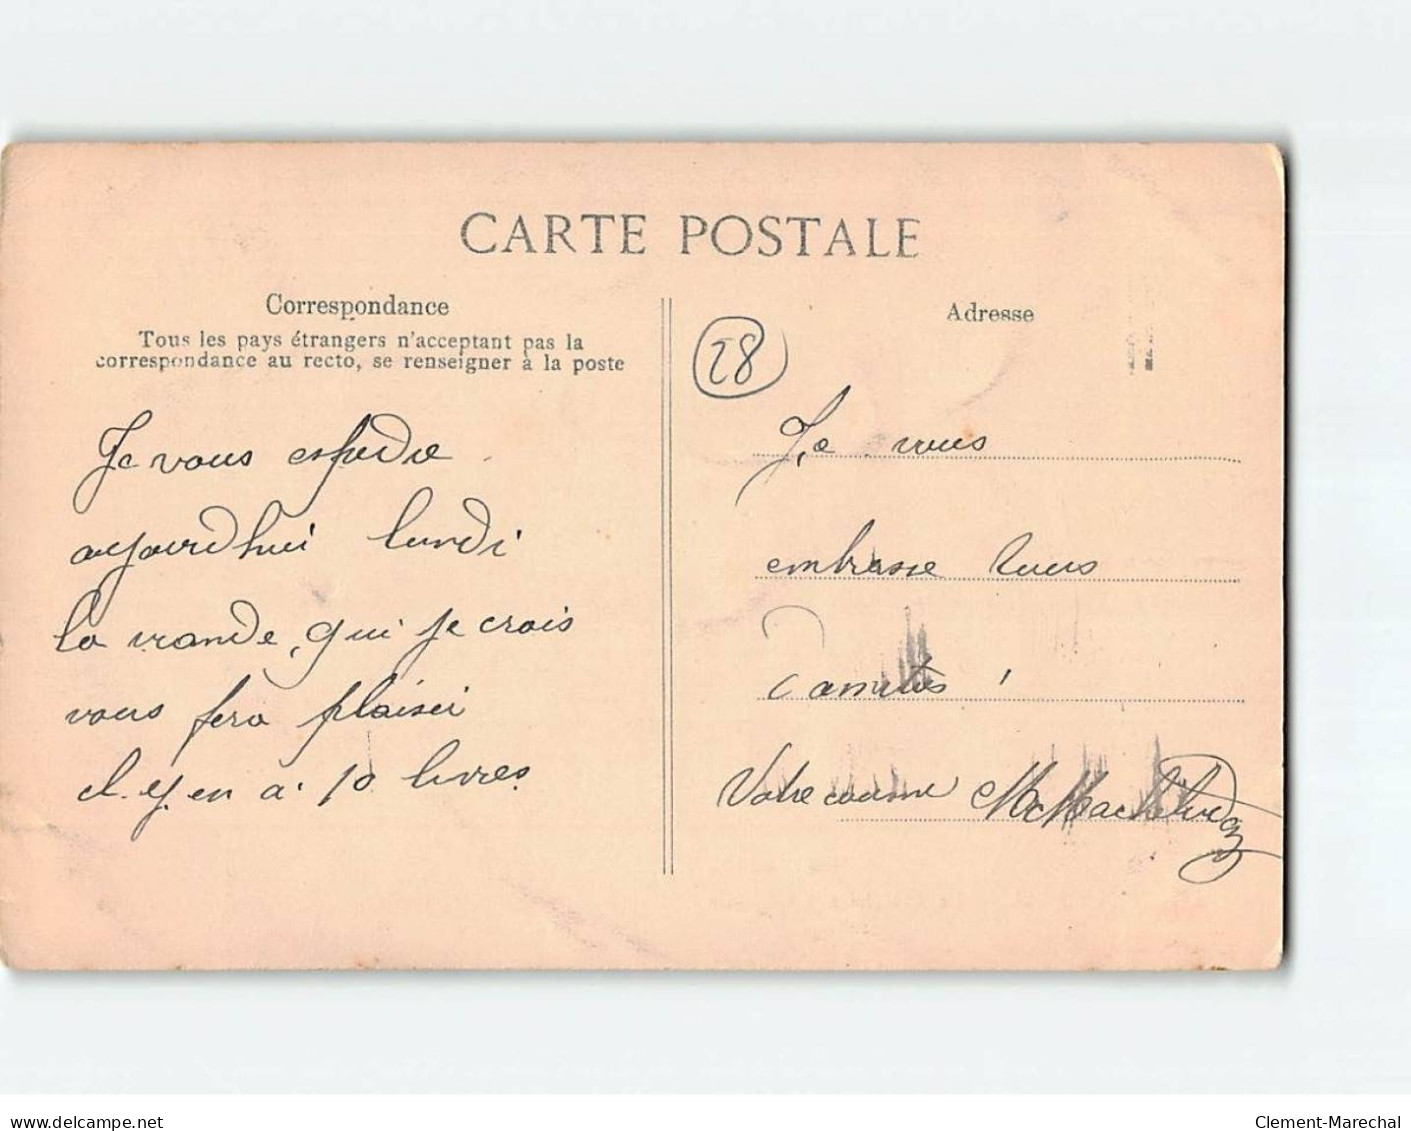 CARTE POSTALE
Correspondance
Tous les pays étrangers n'acceptant pas la
correspondance au recto, se renseigner à la poste
Je vous espedie
aujourdhui lundi
la viande, qui je crois
vous fera plaisir
il. y. en a. 10 livres.
Adresse
28
Je vous
embrasse tous
d'amitiés
Votre cousine
delcampe.net
Clement-Marechal